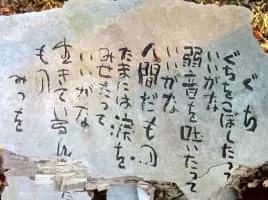 ぐち
ぐちをこぼしたって
いいがな
弱音を吐いたって
いいがな
人間だもの
たまには涙を
みせたって
いいがな
生きているんだ
もの
みつを